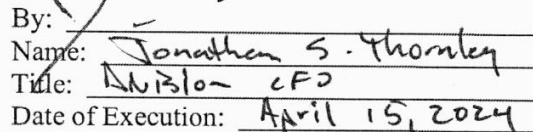 By:
Name: Jonathan S. Thornley
Title: Division CFO
Date of Execution: April 15, 2024